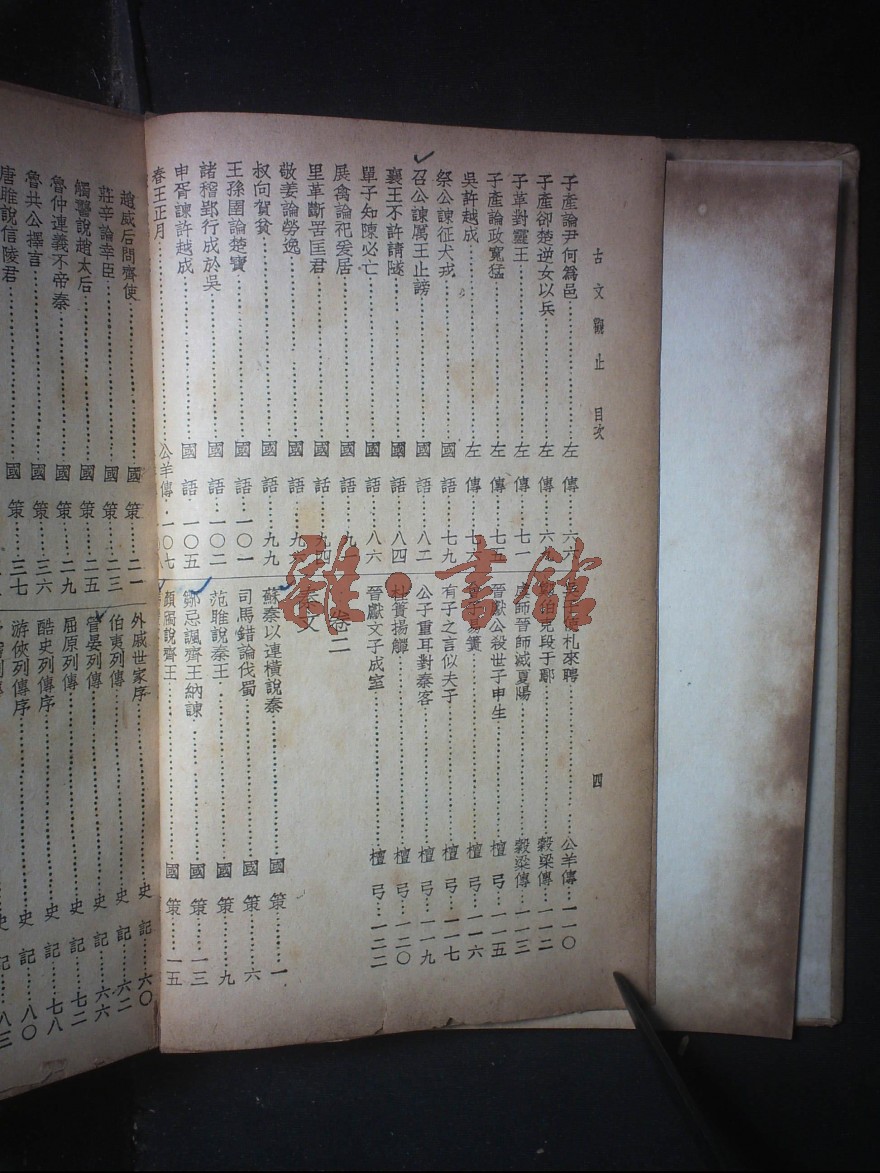 古文觀止 目次 四
子產論尹何爲邑 左傳 六六
子產卻楚逆女以兵 左傳 六九
子革對靈王 左傳 七一
子產論政寬猛 左傳 七五
吳許越成 左傳 七六
祭公諫征犬戎 國語 七九
召公諫厲王止謗 國語 八二
襄王不許請隧 國語 八四
單子知陳必亡 國語 八六
展禽論祀爰居 國語
里革斷罟匡君 國語 九四
敬姜論勞逸 國語 九六
叔向賀貧 國語 九九
王孫圉論楚寶 國語 一〇一
諸稽郢行成於吳 國語 一〇二
申胥諫許越成 國語 一〇五
春王正月 公羊傳 一〇七
吳子使札來聘 公羊傳 一一〇
鄭伯克段于鄢 穀梁傳 一一二
虞師晉師滅夏陽 穀梁傳 一一三
晉獻公殺世子申生 檀弓 一一五
曾子易簀 檀弓 一一六
有子之言似夫子 檀弓 一一七
公子重耳對秦客 檀弓 一一九
杜蕢揚觶 檀弓 一二〇
晉獻文子成室 檀弓 一二二
卷二
秦文
蘇秦以連橫說秦 國策 一
司馬錯論伐蜀 國策 六
范雎說秦王 國策 九
鄒忌諷齊王納諫 國策 一三
顏斶說齊王 國策 一五
趙威后問齊使 國策 二一
莊辛論幸臣 國策 二三
觸讋說趙太后 國策 二五
魯仲連義不帝秦 國策 二九
魯共公擇言 國策 三六
唐雎說信陵君 國策 三七
外戚世家序 史記 六〇
伯夷列傳 史記 六二
管晏列傳 史記 六六
屈原列傳 史記 七二
酷吏列傳序 史記 七八
游俠列傳序 史記 八〇
雜·書館